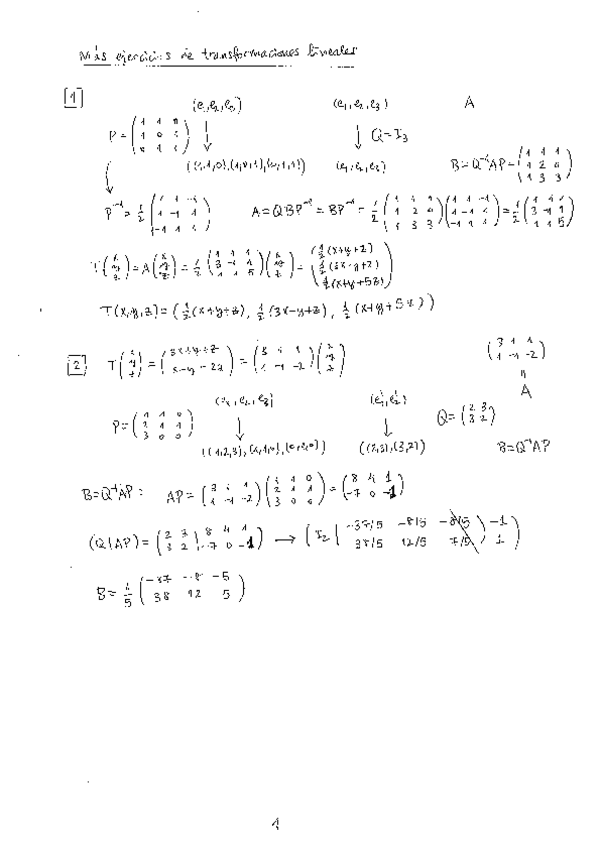 Más ejercicios de transformaciones lineales
1
(e₁,e₂,e₃) (e₁,e₂,e₃) A
P = (1 1 0; 1 0 1; 0 1 1) ↓ ↓ Q=I₃
((1,1,0),(1,0,1),(0,1,1)) (e₁,e₂,e₃) B=Q⁻¹AP= (1 1 1; 1 2 0; 1 3 3)
P⁻¹ = 1/2 (1 1 -1; 1 -1 1; -1 1 1) A=QBP⁻¹=BP⁻¹= 1/2 (1 1 1; 1 2 0; 1 3 3)(1 1 -1; 1 -1 1; -1 1 1) = 1/2 (1 1 1; 3 -1 1; 1 1 5)
T(x; y; z) = A(x; y; z) = 1/2 (1 1 1; 3 -1 1; 1 1 5)(x; y; z) = (1/2(x+y+z); 1/2(3x-y+z); 1/2(x+y+5z))
T(x,y,z)=(1/2(x+y+z), 1/2(3x-y+z), 1/2(x+y+5z))
2 T(x; y; z) = (3x+y+z; x-y-2z) = (3 1 1; 1 -1 -2)(x; y; z) (3 1 1; 1 -1 -2)
(e₁,e₂,e₃) (e₁',e₂') " A
P = (1 1 0; 2 1 1; 3 0 0) ↓ ↓ Q = (2 3; 3 2)
((1,2,3),(1,1,0),(0,1,0)) ((2,3),(3,2)) B=Q⁻¹AP
B=Q⁻¹AP: AP = (3 1 1; 1 -1 -2)(1 1 0; 2 1 1; 3 0 0) = (8 4 1; -7 0 -1)
(Q|AP) = (2 3 | 8 4 1; 3 2 | -7 0 -1) → (I₂ | -38/5 -8/5 -8/5 -1; 38/5 12/5 7/5 1)
B = 1/5 (-37 -8 -5; 38 12 5)
1